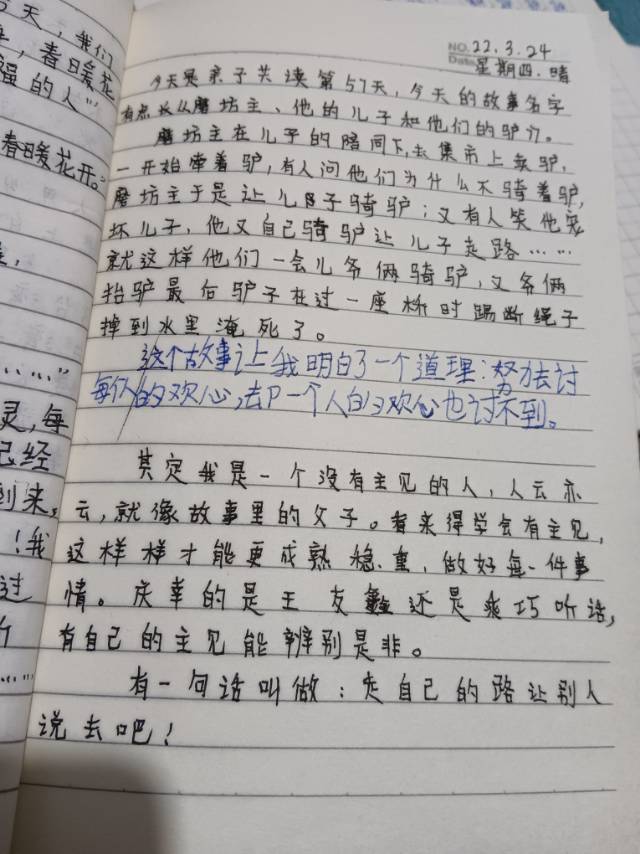 今天,我们
,春日暖花
福的人”
春日暖花开。”
……”
灵,每
己经
到来,
!我
过
……”
NO. 22.3.24
Date 星期四.晴
今天是亲子共读第57天,今天的故事名字
有点长《磨坊主、他的儿子和他们的驴》。
磨坊主在儿子的陪同下,去集市上卖驴,
一开始牵着驴,有人问他们为什么不骑着驴,
磨坊主于是让儿子骑驴;又有人笑他宠
坏儿子,他又自己骑驴让儿子走路……
就这样他们一会儿爷俩骑驴,又爷俩
抬驴最后驴子在过一座桥时踢断绳子
掉到水里淹死了。
这个故事让我明白了一个道理:努力去讨
每个人的欢心,却一个人的欢心也讨不到。
其实我是一个没有主见的人,人云亦
云,就像故事里的父子。看来得学会有主见,
这样样才能更成熟稳重,做好每一件事
情。庆幸的是王友 还是乖巧听话,
有自己的主见能辨别是非。
有一句话叫做:走自己的路让别人
说去吧!